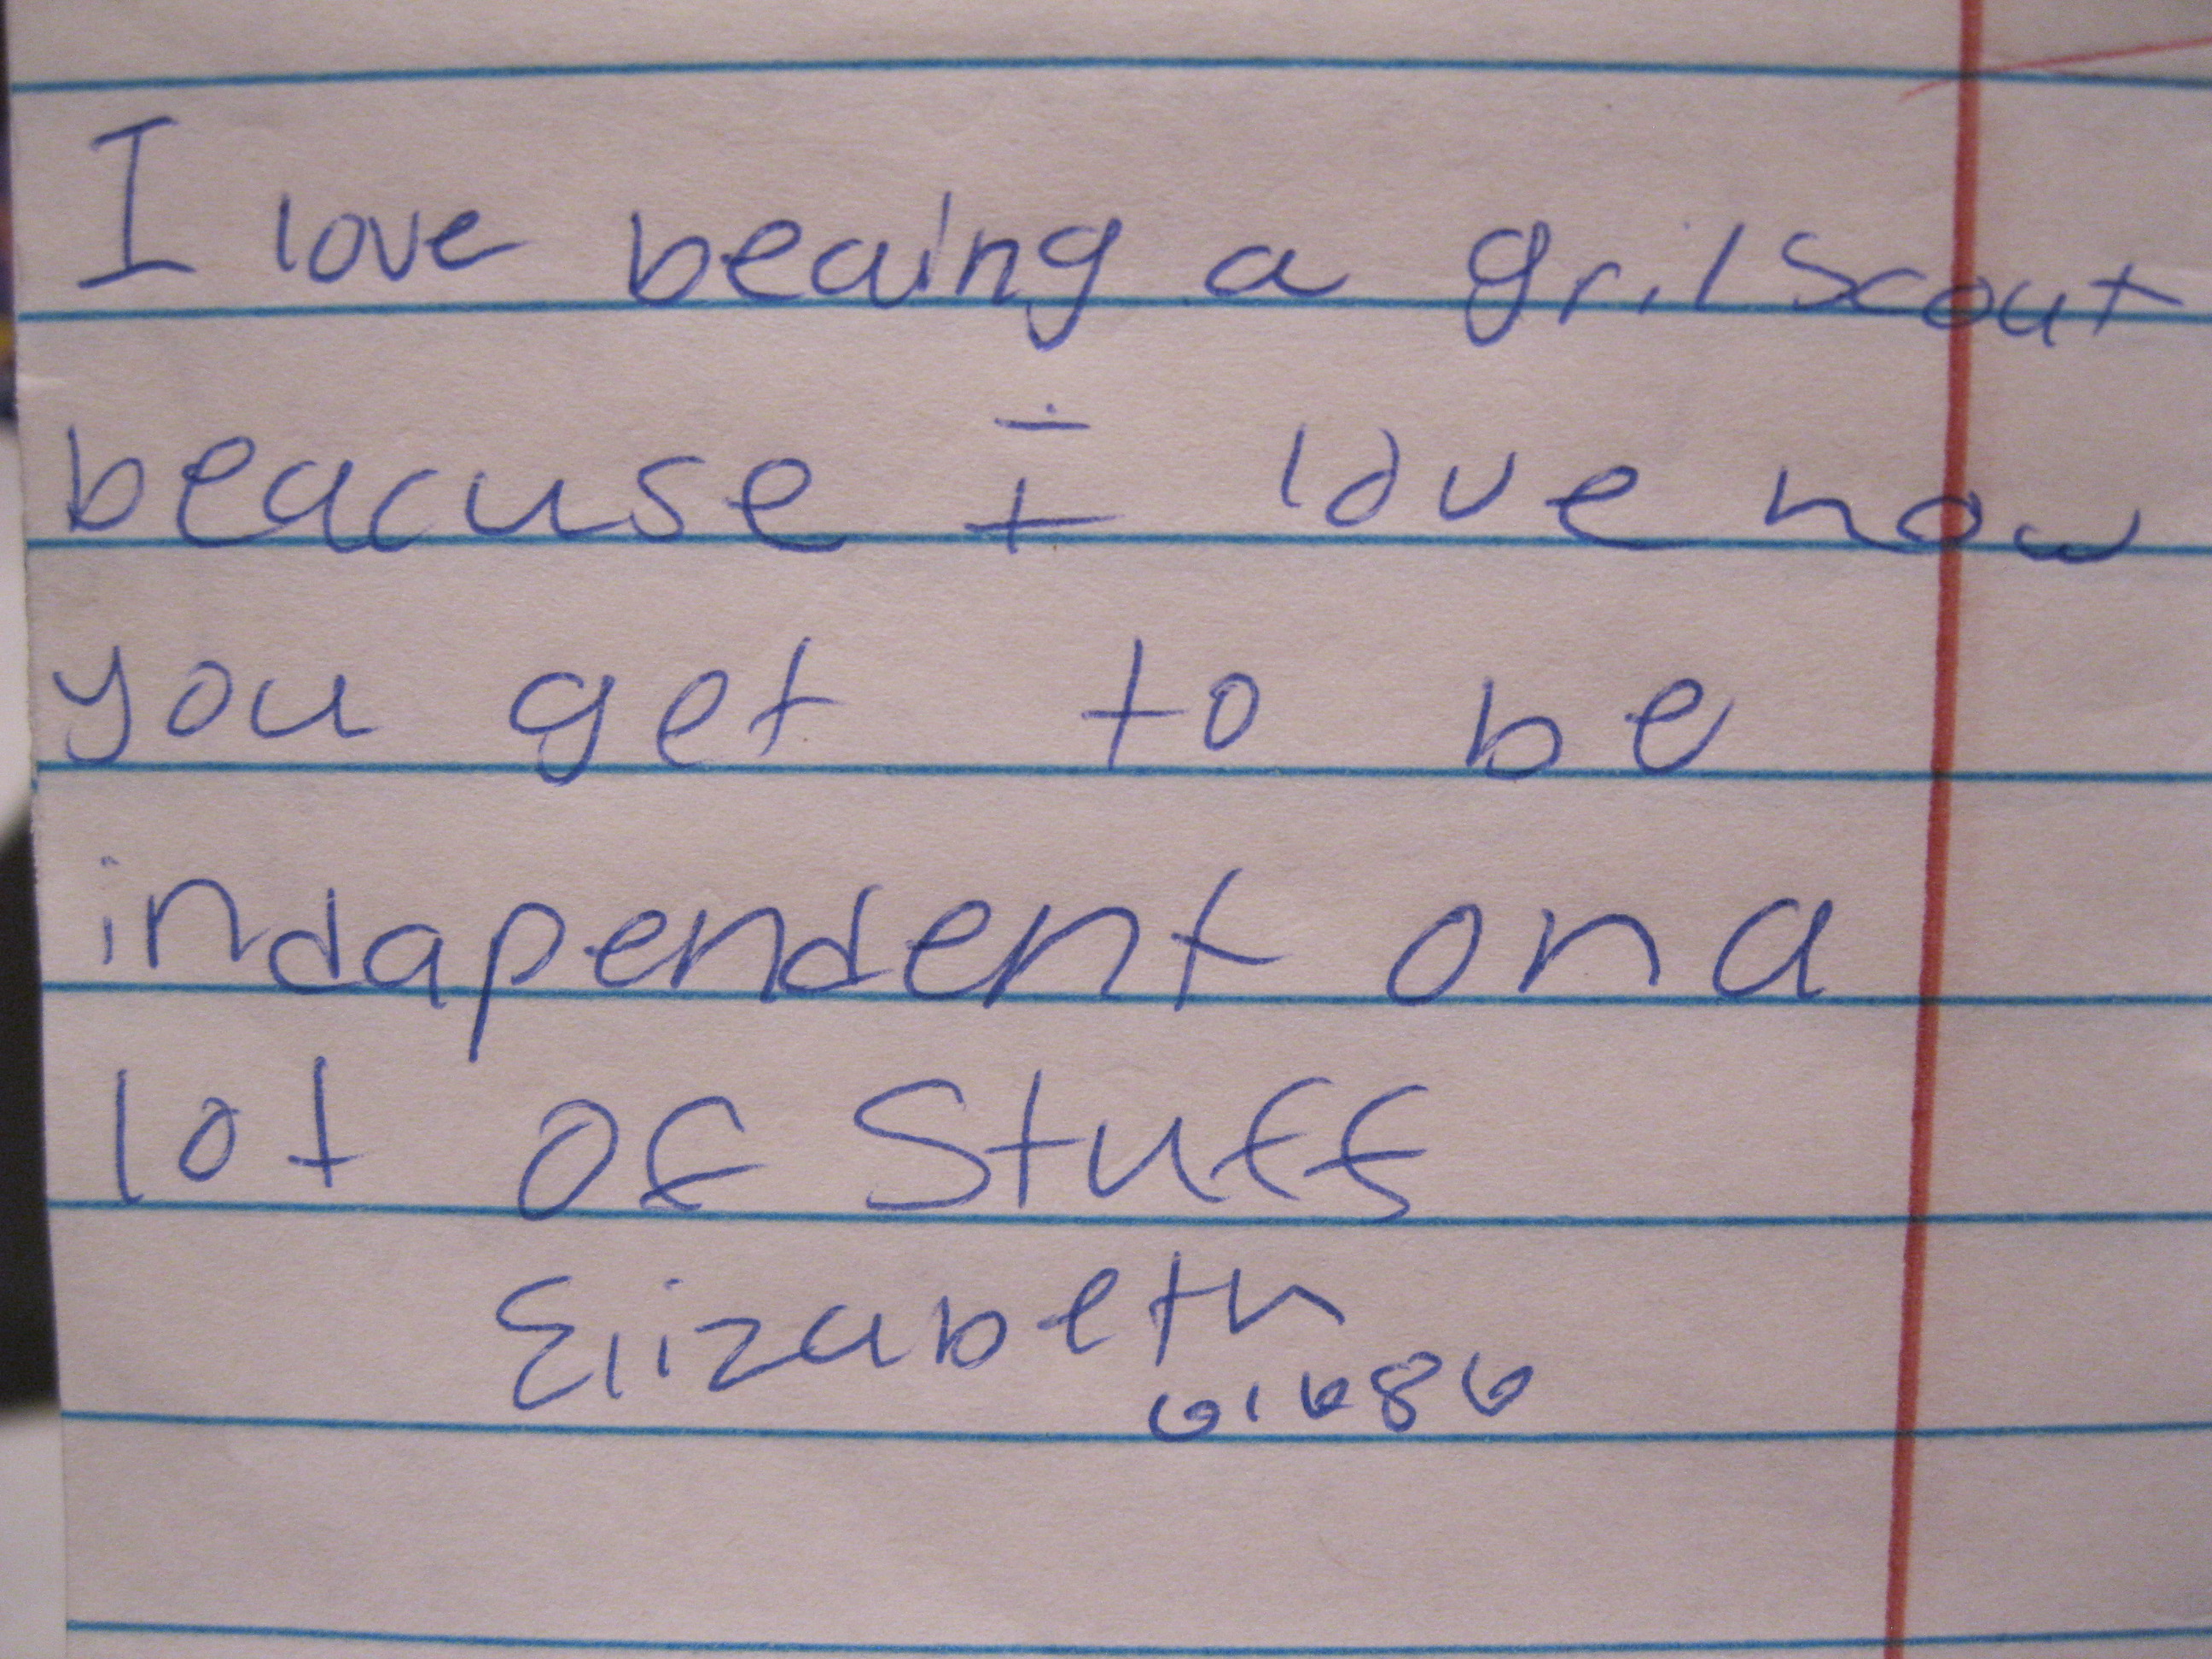 I love beaing a gril scout
beacuse I love how
you get to be
indapendent on a
lot of Stuff
Elizabeth
61686